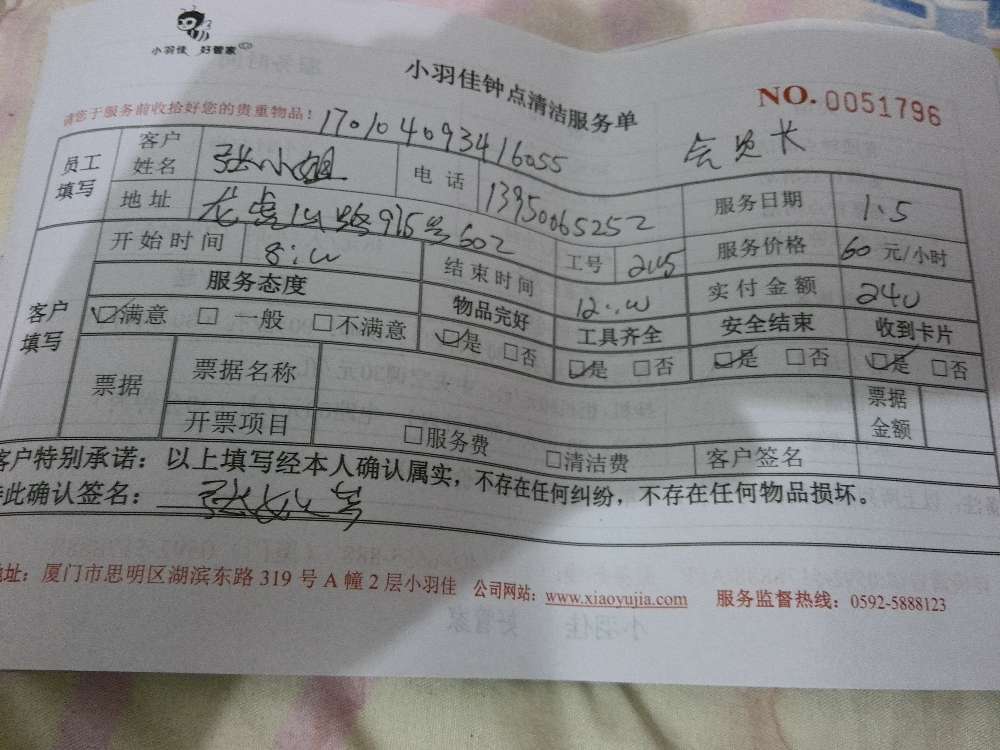 小羽佳 好管家
小羽佳钟点清洁服务单
NO. 0051796
请您于服务前收拾好您的贵重物品！
170104093416055
会员长
员工填写
客户姓名 张小姐 电话 13950065252 服务日期 1.5
地址 龙虎山路975号602 工号 服务价格 60 元/小时
客户填写
开始时间 8:00 结束时间 12:00 实付金额 240
服务态度 物品完好 工具齐全 安全结束 收到卡片
☑满意 □ 一般 □不满意 ☑是 □否 ☑是 □否 ☑是 □否 ☑是 □否
票据 票据名称 票据金额
开票项目 □服务费 □清洁费 客户签名
客户特别承诺：以上填写经本人确认属实，不存在任何纠纷，不存在任何物品损坏。
特此确认签名：
地址：厦门市思明区湖滨东路 319 号 A 幢 2 层小羽佳 公司网站：www.xiaoyujia.com 服务监督热线：0592-5888123